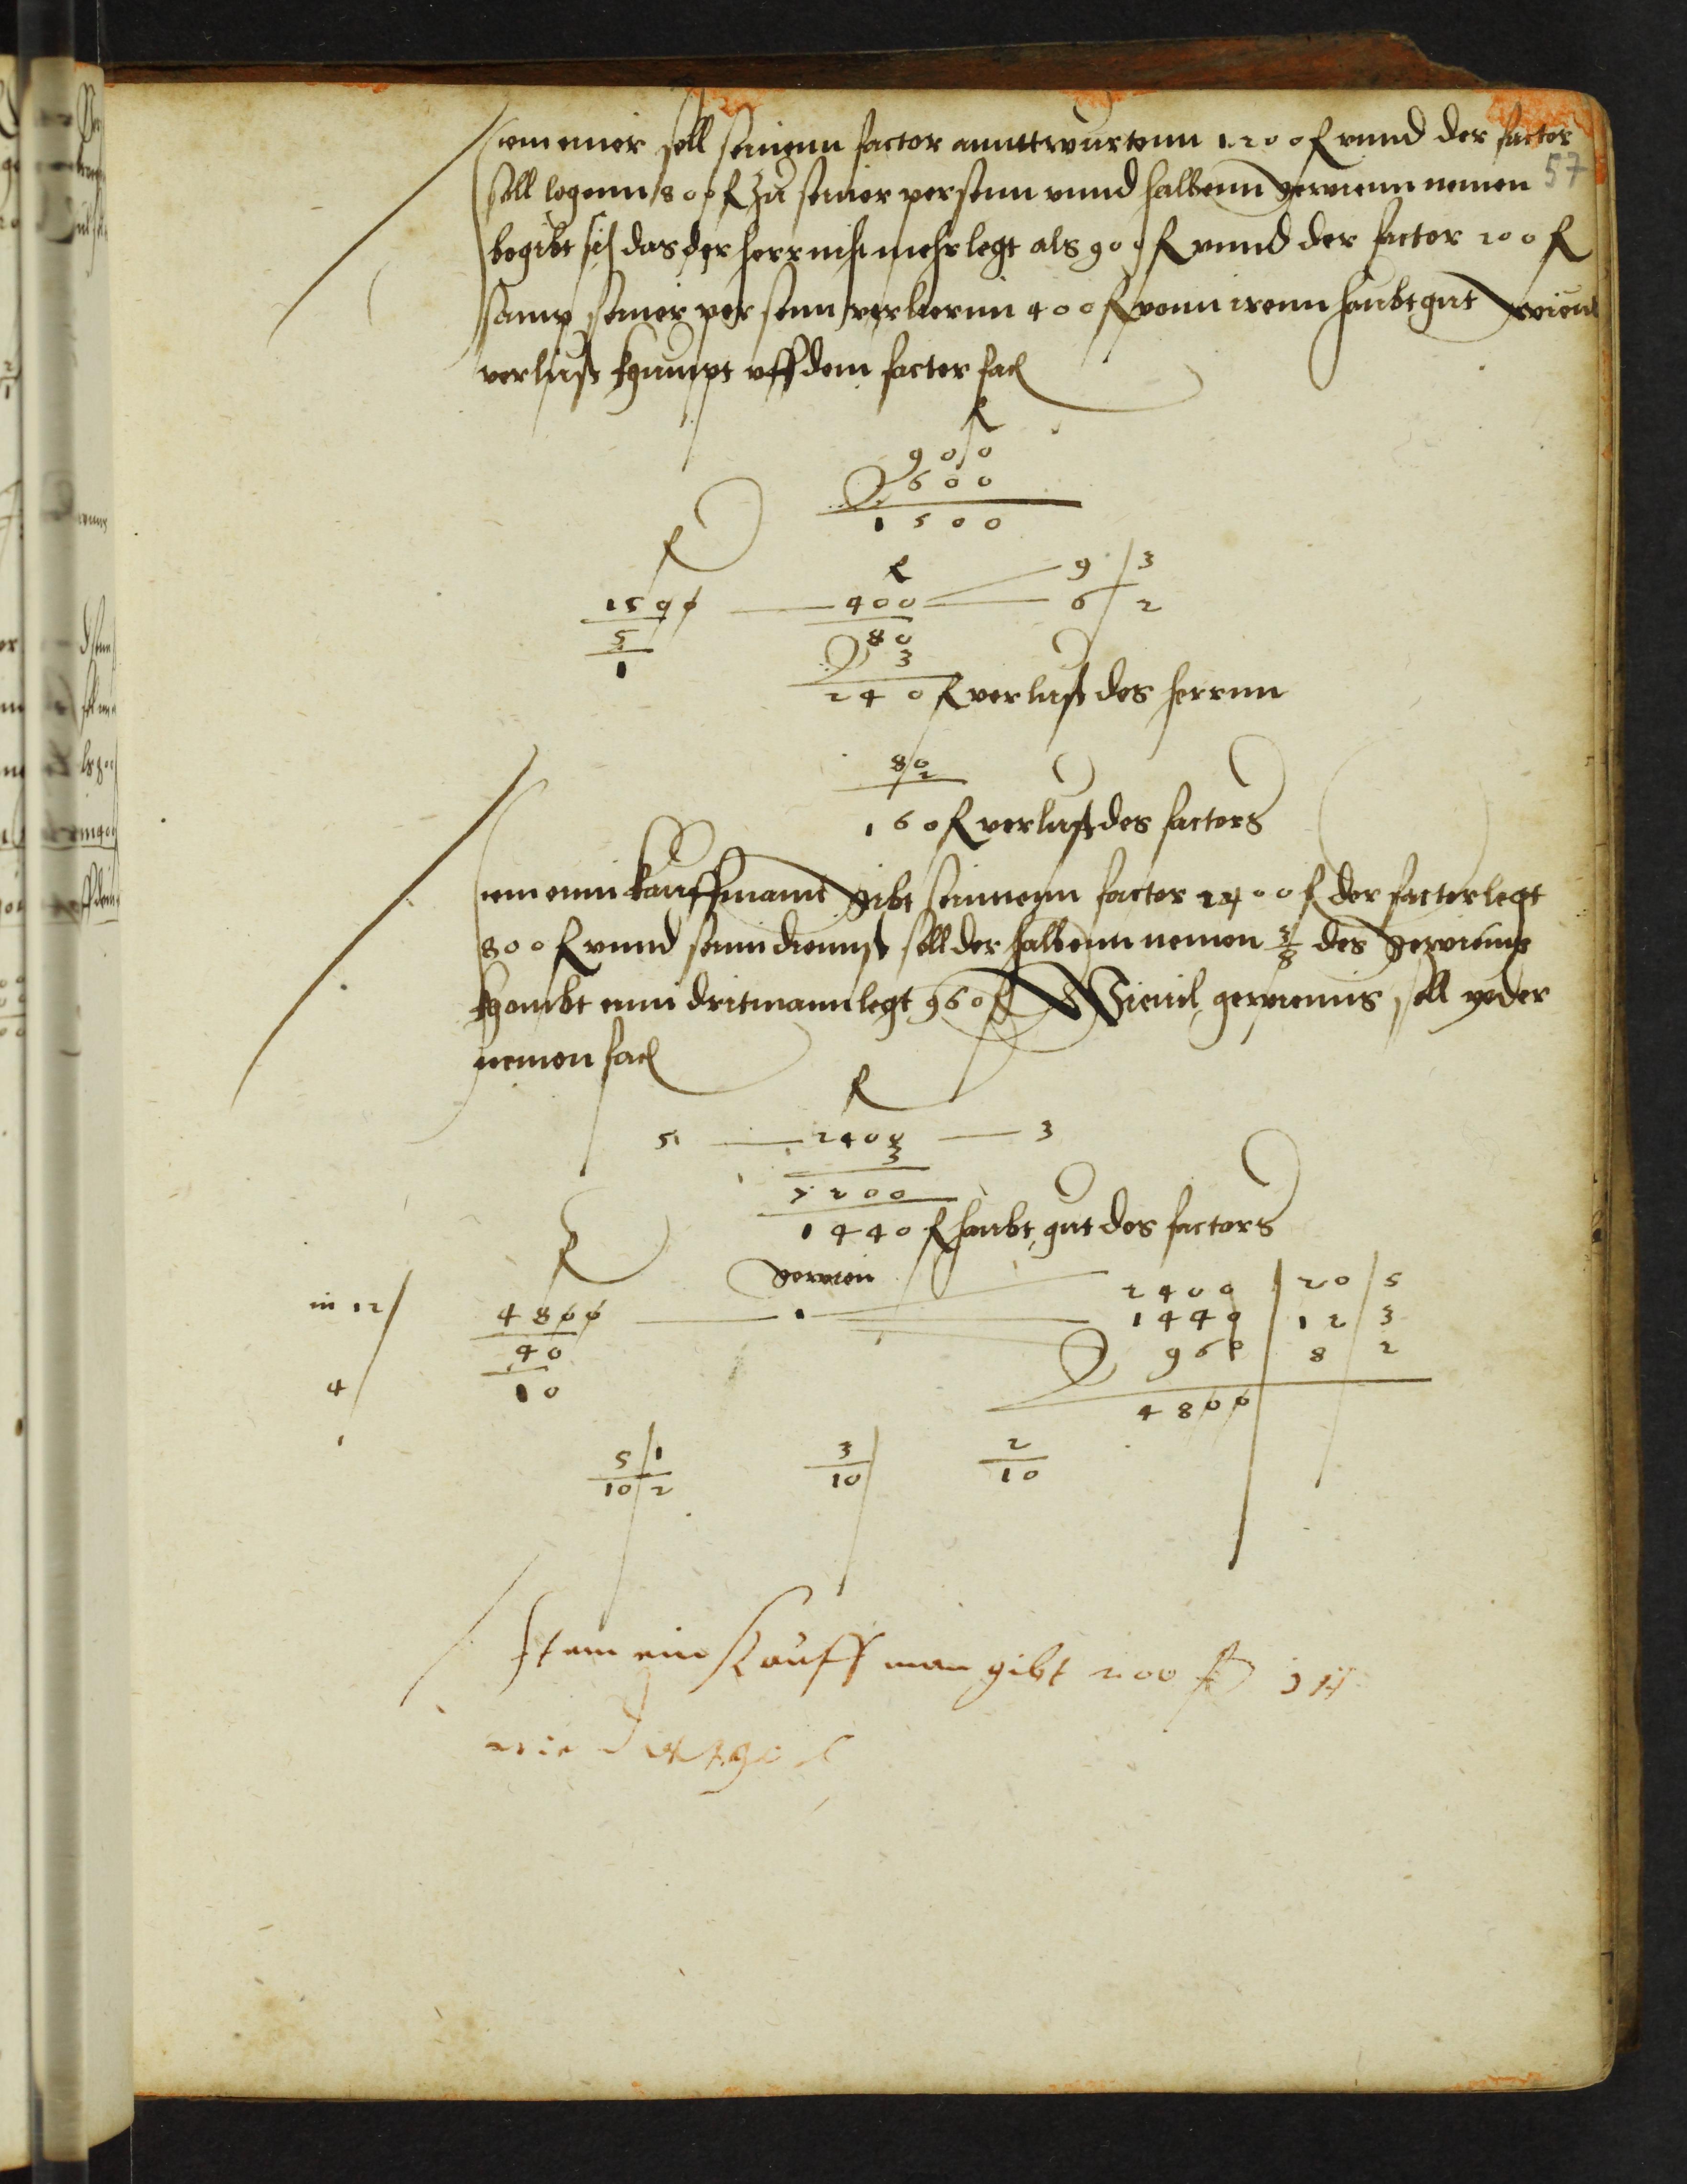 Item einer soll seinenn factor anntwurtenn 1200 fl vnnd der factor
57
soll legenn 800 fl zu seiner personn vnnd halbenn gewienn nemen
begibt sich das der herr nicht mehr legt als 900 fl vnnd der factor 200 fl
sampt seiner personn verliernn 400 fl vonn irenn haubtgut wieuil
verlust kumpt vff dem factor fach
fl
900
600
1500
fl
fl
9 3
1500 400 6 2
5 80
1 3
240 fl verlust des herrnn
80
2
160 fl verlust des factors
Item einn kauffmann gibt seinnenn factor 2400 fl der factor legt
800 fl vnnd seinn diennst soll der halbenn nemen 3/8 des gewiens
kombt einn dritmann legt 960 fl Wieuil gewienns soll yeder
nemen fach
fl
5 2400 3
3
7200
1440 fl haubtgut des factors
fl
gewien
2400 20 5
in 12 4800 1 1440 12 3
40 960 8 2
4 10
4800
1
5/10 1/2 3/10 2/10
Item ein Kauffman gibt 200 fl